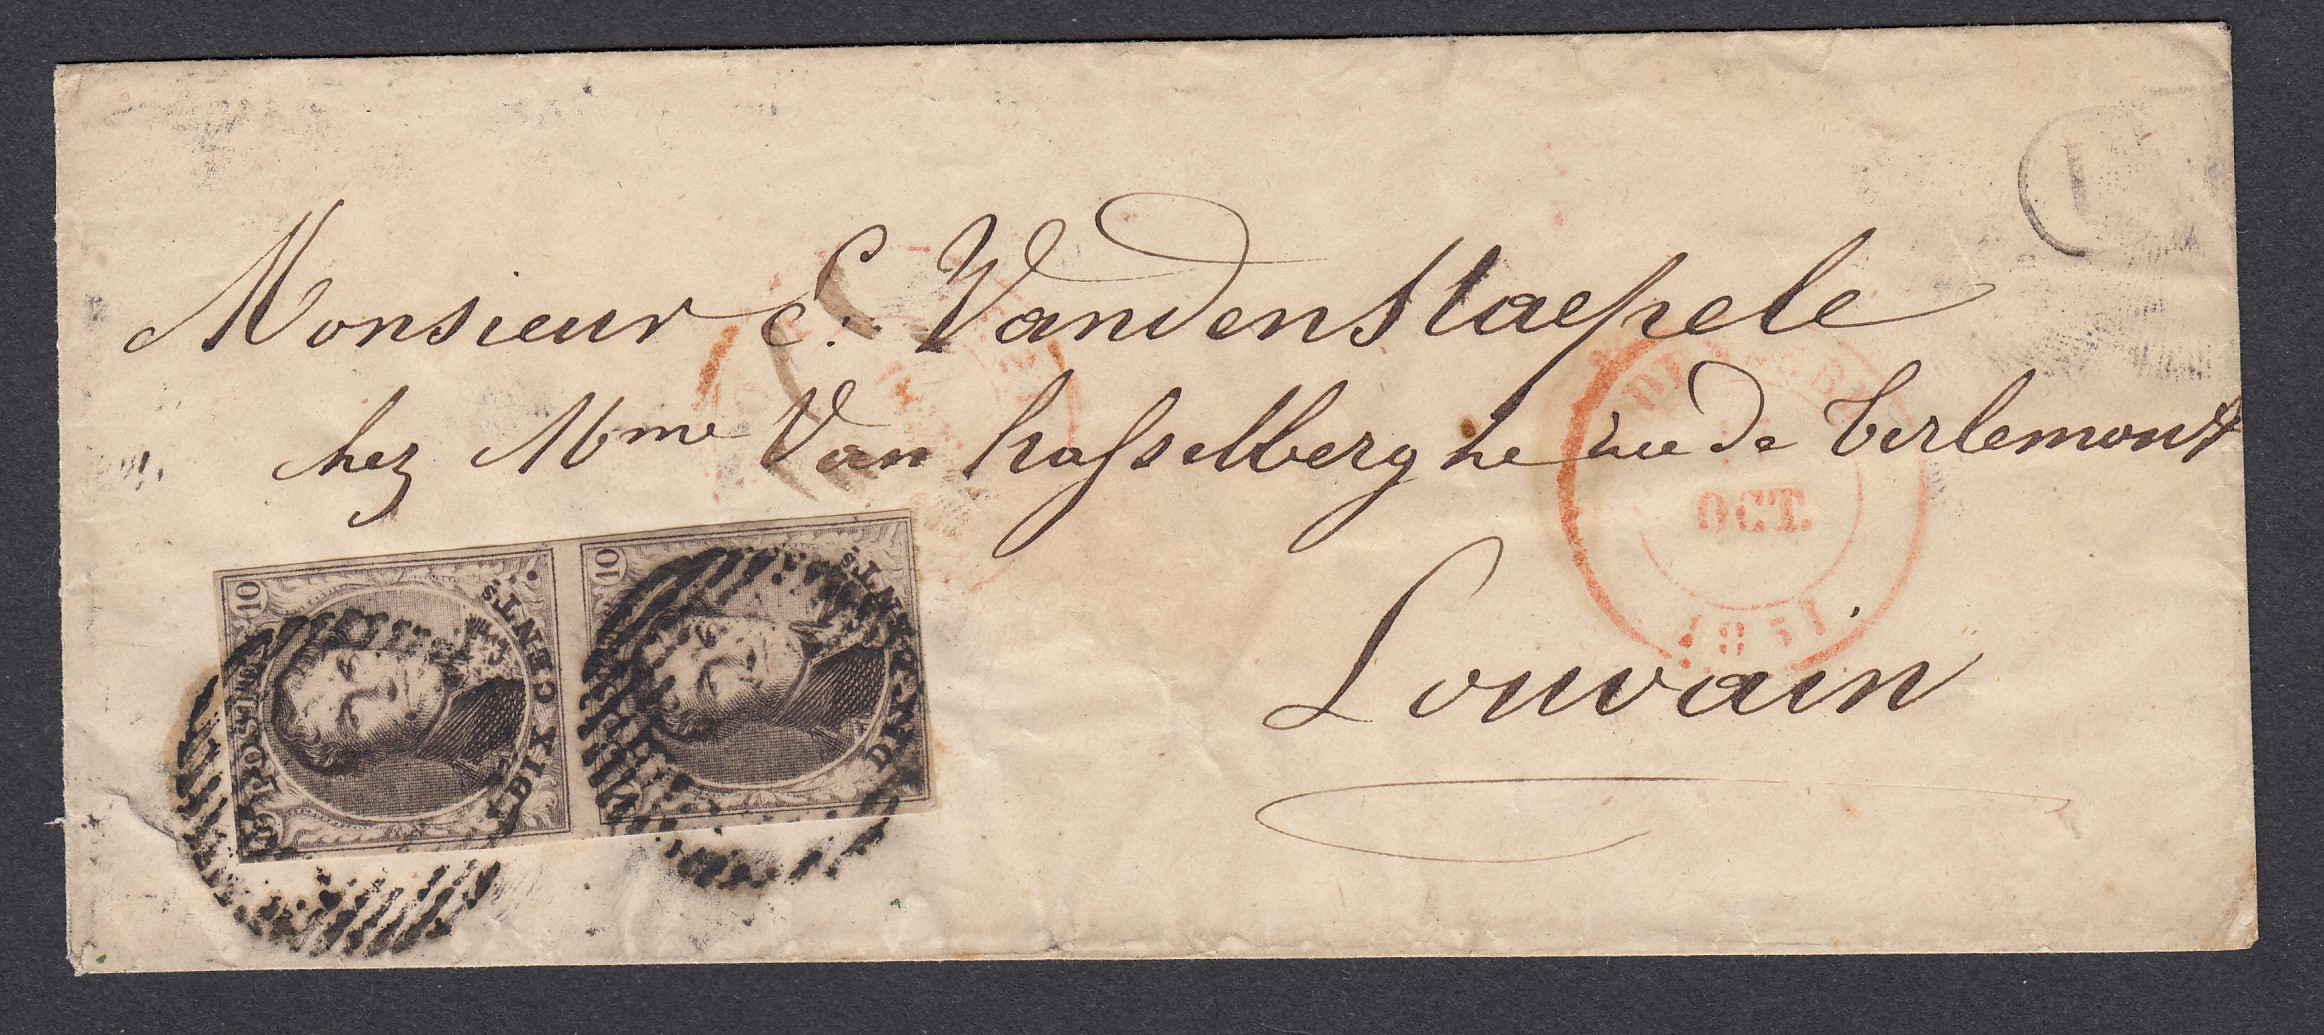 Monsieur C. Vandenstaepele
chez Mme Van hasselberghe rue de Tirlemont
Louvain
OCT.
1851
10 10
POSTES
DIX CENTS
10
DIX CENTS